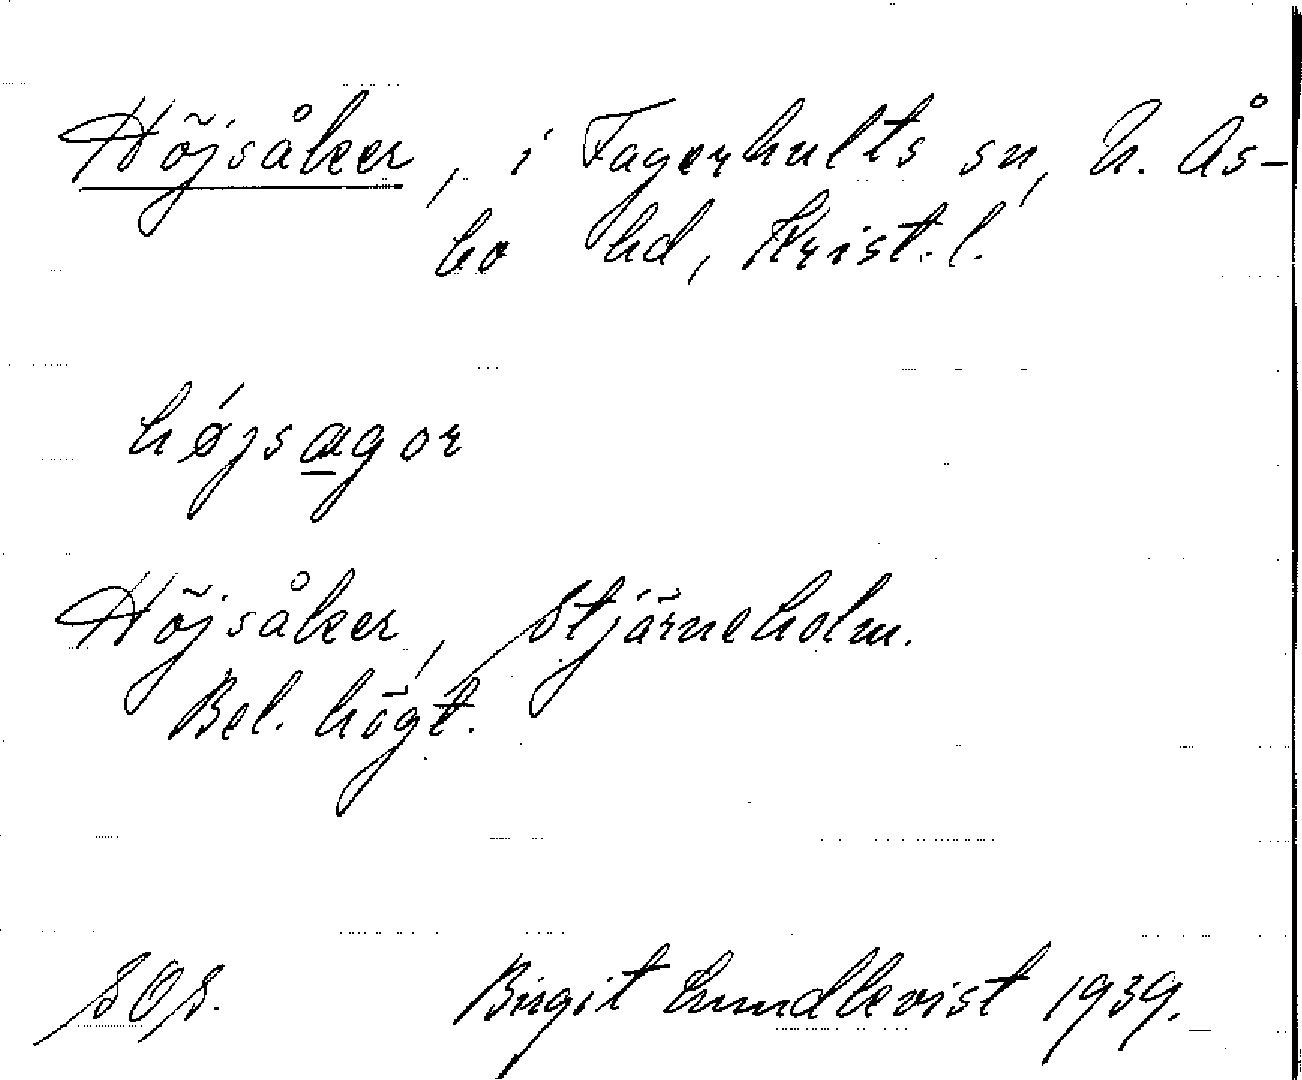 Höjsåker, i Fagerhults sn, N. Ås-
bo hd, Krist. l.
højsagor
Höjsåker, Stjärneholm.
Bel. högt.
SOS. Birgit Lundkvist 1939.